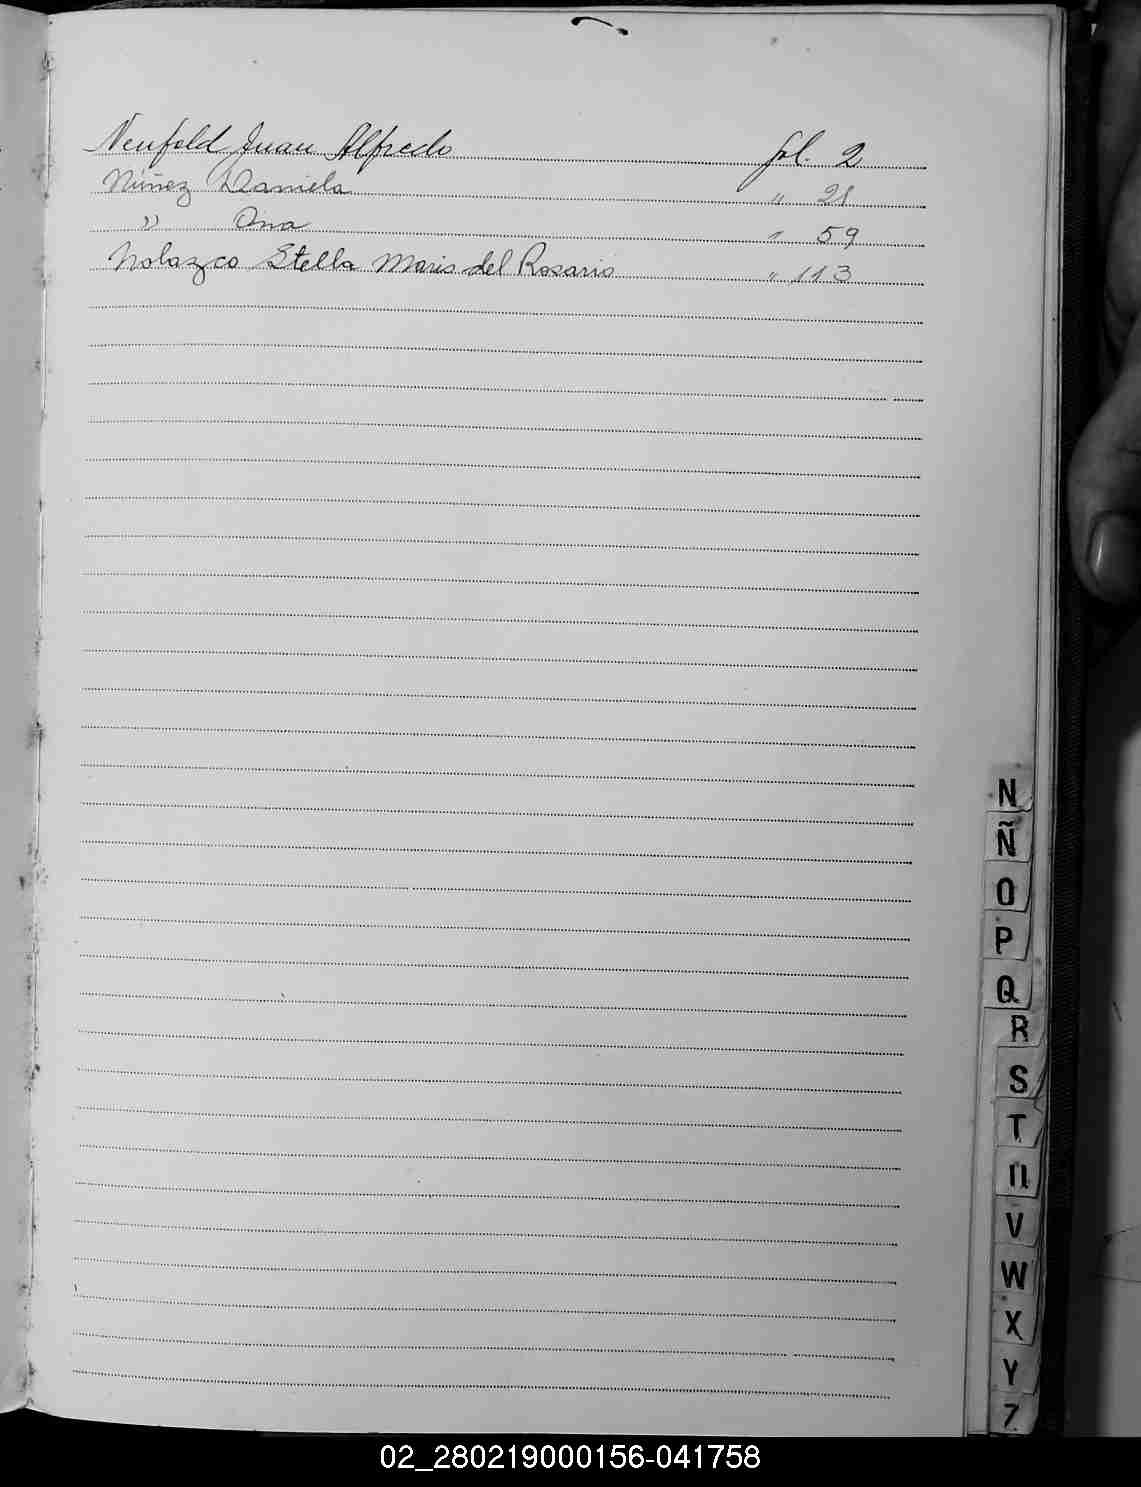 Neufeld Juan Alfredo fol. 2
Núñez Daniela " 21
" Ana " 59
Nolazco Stella Maris del Rosario " 113
N
Ñ
O
P
Q
R
S
T
U
V
W
X
Y
Z
02_280219000156-041758